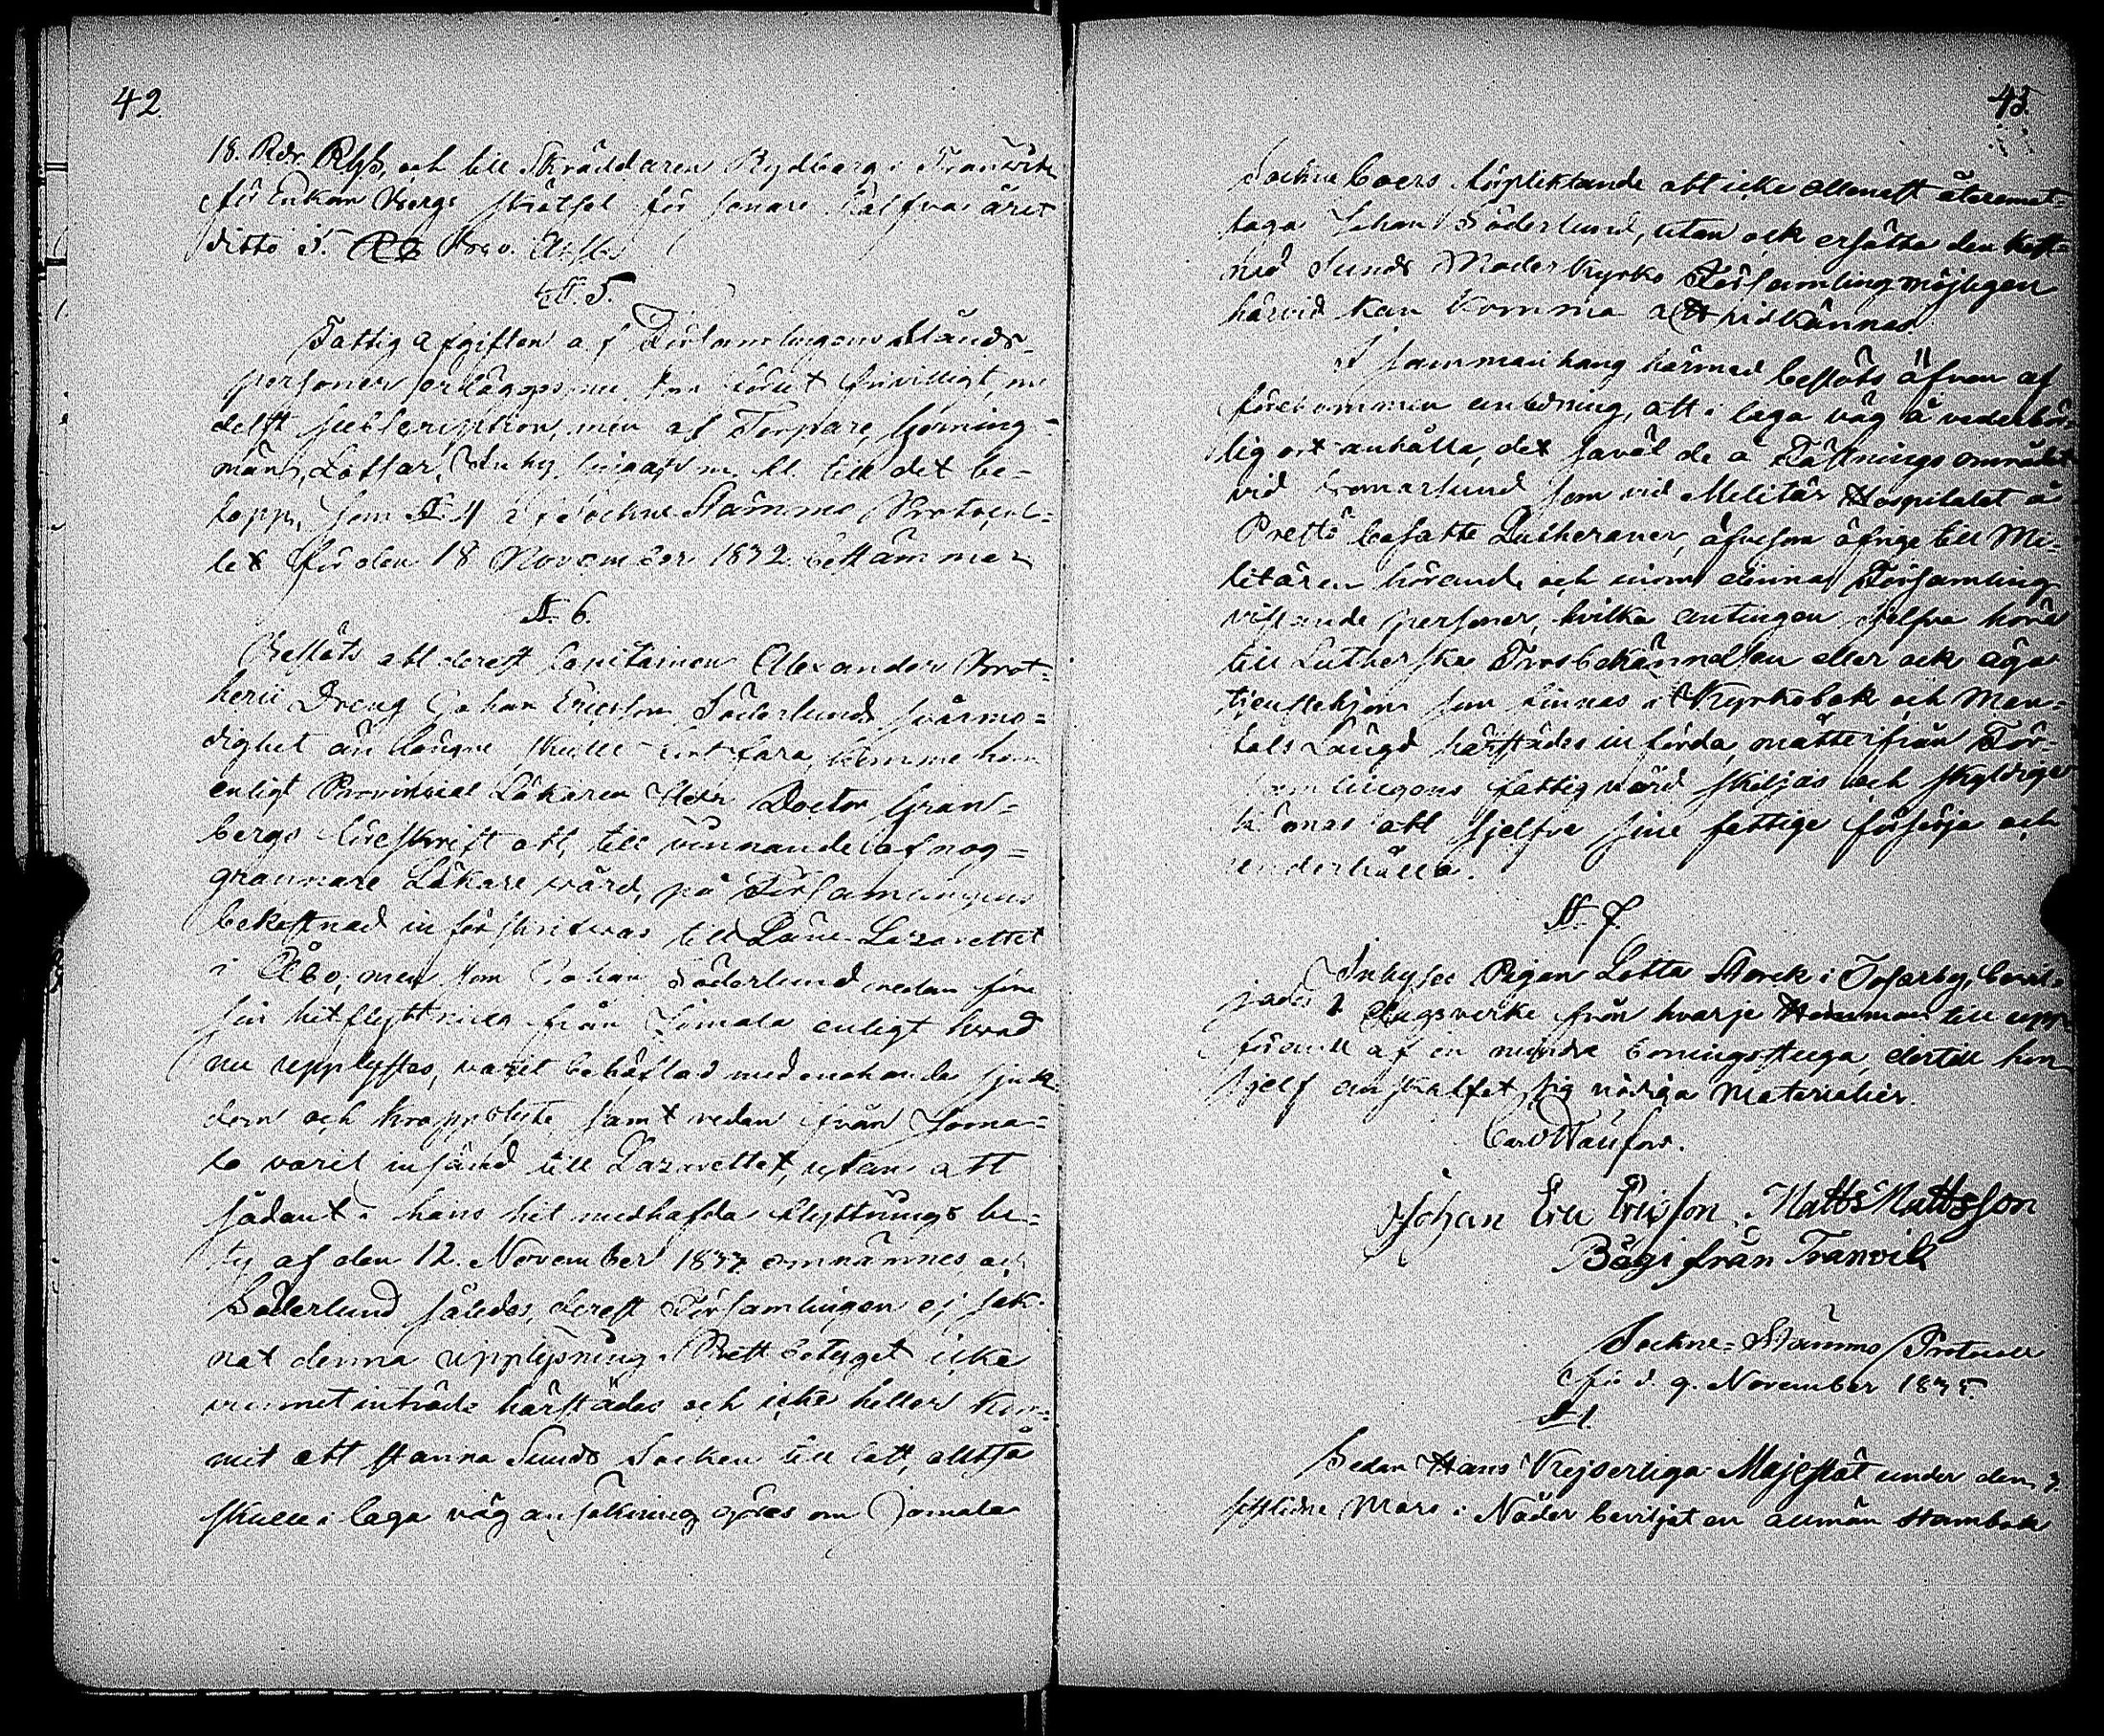 42.
18. Rdr. Rgs, och till Skräddaren Rydberg i Tranvik
för Enkan Bergs skötsel för senare halfva året
ditto 5. Rdr Bco. Assr.
§. 5.
Fattig afgiften af Församlingens Stånds-
personer erlägges nu som förut frivilligt, me
delst subscription, men af Torpare, Gerning-
män, Lotsar, Inhysingar m. fl. till det be-
lopp, som §. 4 af Sockne Stämmo Protocol-
let för den 18 November 1832 bestämmer
§. 6.
Beslöts att derest Capitainen Alexander Brot-
herii Dreng Johan Ericsson Söderlunds svårmo-
dighet än längre skulle fortfara, komme han
enligt Provincial Läkaren Herr Doctor Gran-
bergs föreskrift att, till vinnande af nog-
grannare Läkare vård, på Församlingens
bekostnad införskrifvas till Läns-Lazarettet
i Åbo; men som Johan Söderlund redan före
sin hitflyttning från Jomala enligt hvad
nu upplystes, varit behäftad med enahanda sjuk-
dom och kroppslyte samt redan från Joma-
la varit insänd till Lazarettet, utan att
sådant i hans hit medhafda flyttnings be-
tyg af den 12. November 1833 omnämnes, och
Söderlund således, derest Församlingen ej sak-
nat denna upplysning i Prest betyget icke
vunnet inträde härstädes och icke heller kom-
mit att stanna Sunds Socken till last, alltså
skulle i laga väg ansökning göras om Jomala
43.
Sockne boers förpliktande att icke allenast återemot-
taga Johan Söderlund, utan ock ersätta den kost-
nad Sunds Moderkyrko Församling möjligen
härvid kan komma att vidkännas.
I sammanhang härmed beslöts äfven af
förekommen anledning, att i laga väg å vederbör-
lig ort anhålla, det såväl de å Fästnings området
vid Bomarsund som vid Militär Hospitalet å
Prestö besatte Lutheraner, äfvesom öfrige till Mi-
litären hörande och inom denna Församling
vistande personer, hvilka antingen sjelfva höra
till Lutherska Trosbekännelsen eller ock äga
tjenstehjon som finnas i Kyrkobok och Man-
tals Längd härstädes införda, måtte ifrån För-
samlingens fattigvård skiljas och skyldige
kännas att sjelfve sine fattige försörja och
underhålla.
§. 7.
Inhyses Pigan Lotta Storck i Tosarby, bevil-
jades 1 Dagsverke från hvarje Hemman till upp-
förande af en mindre boningsstuga, dertill hon
sjelf anskaffat sig nödiga Materialier.
Carl Haufors.
Johan Eric Ericsson, Matts Mattsson
Bägi från Tranvik
Sockne-Stämmo Protocoll
för d. 9. November 1835.
§ 1.
Sedan Hans Kejserliga Majestät under den 3
sistlidne Mars i Nåder beviljat en allmän Stambok